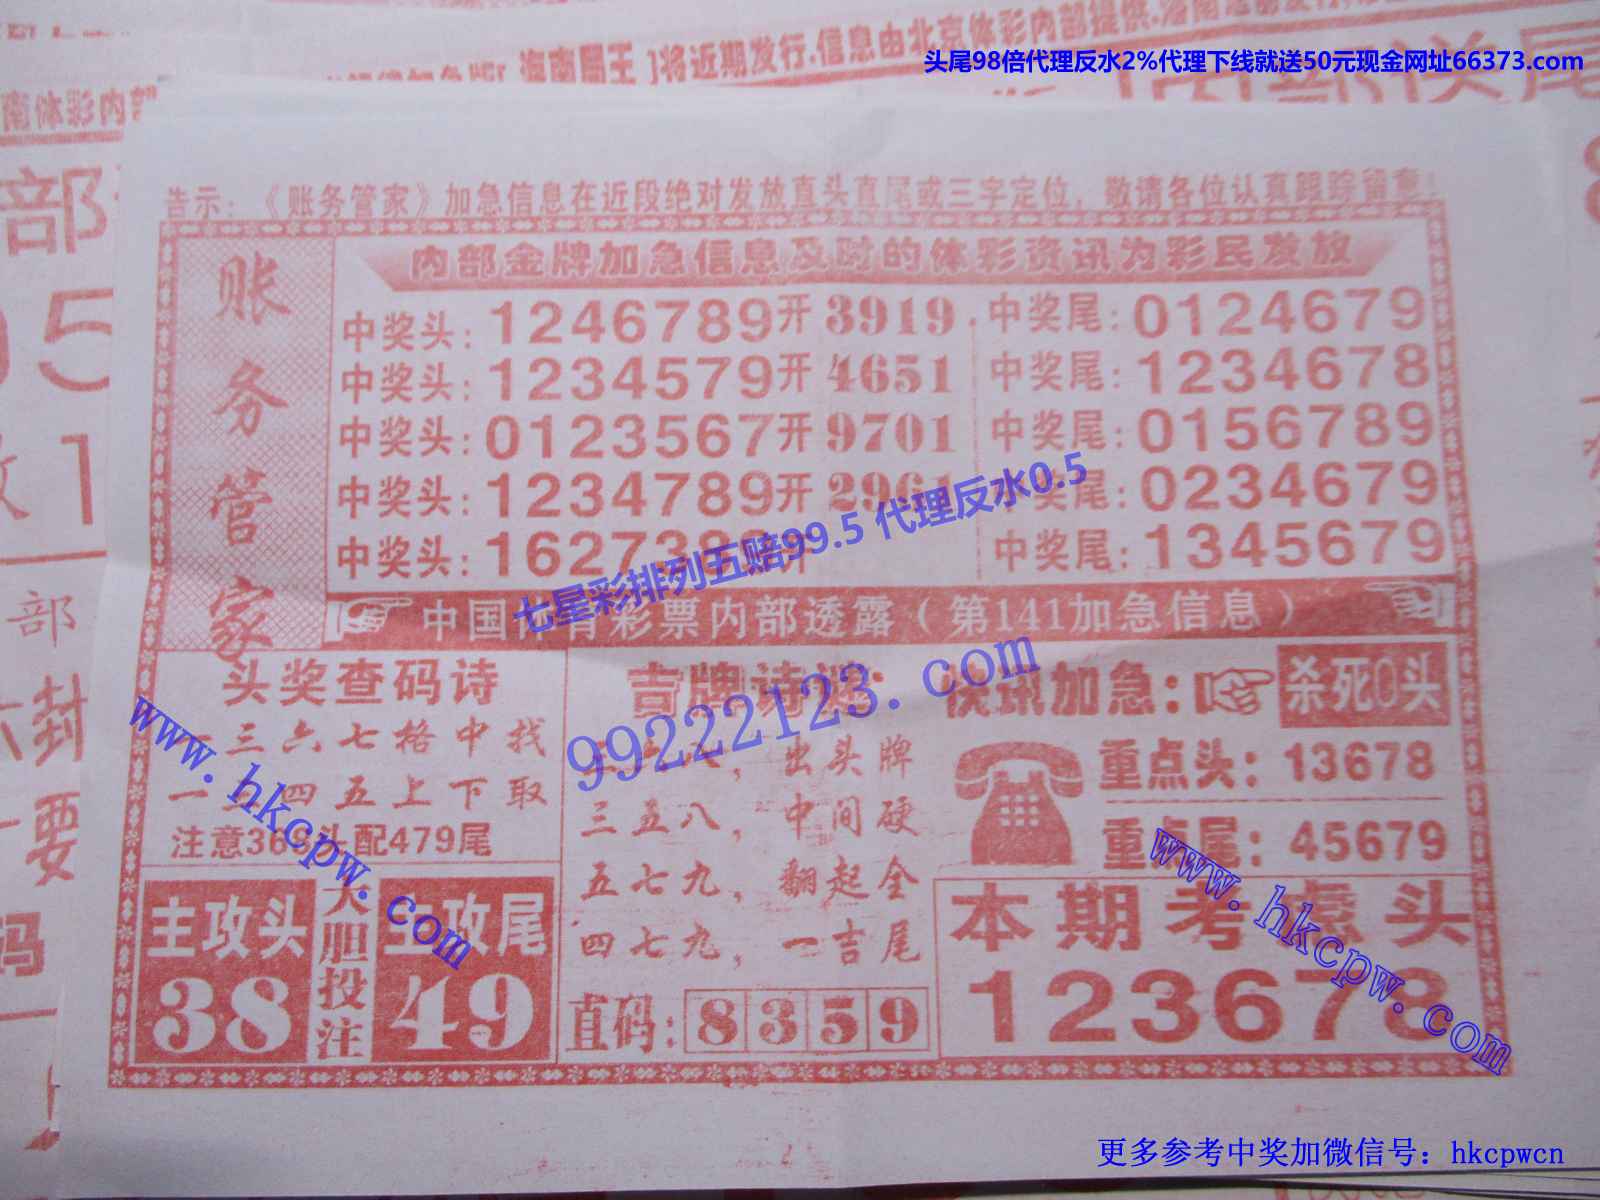 信息由北京体彩内部提供.
海南周王 ]将近期发行.
头尾98倍代理反水2%代理下线就送50元现金网址66373.com
南体彩内部
告示：《账务管家》加急信息在近段绝对发放直头直尾或三字定位，敬请各位认真跟踪留意！
账务管家
内部金牌加急信息及时的体彩资讯为彩民发放
中奖头：1246789开3919 中奖尾：0124679
中奖头：1234579开4651 中奖尾：1234678
中奖头：0123567开9701 中奖尾：0156789
中奖头：1234789开296 中奖尾：0234679
中奖头： 中奖尾：1345679
七星彩排列五赔99.5 代理反水0.5
中国体育彩票内部透露（第141加急信息）
头奖查码诗
三六七格中找
一 四五上下取
注意369头配479尾
主攻头
38
大胆投注
主攻尾
49
吉牌诗谜：
出头牌
三五八，中间硬
五七九，翻起全
四七九，一吉尾
直码：8359
快讯加急：
杀死0头
重点头：13678
重点尾：45679
本期考虑头
123678
99222123.com
www.hkcpw.com
www.hkcpw.com
更多参考中奖加微信号：hkcpwcn